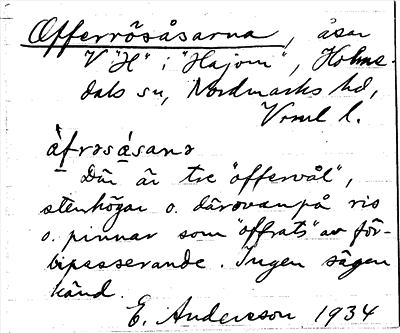 Offerrösåsarna, åsar
V "H" i "Hajom", Holme-
dals sn, Nordmarks hd,
Vrml l.
àfrosásana
Där är tre "offervål",
stenhögar o. därovanpå ris
o. pinnar som "offrats" av för-
bipasserande. Ingen sägen
känd.
E. Andersson 1934